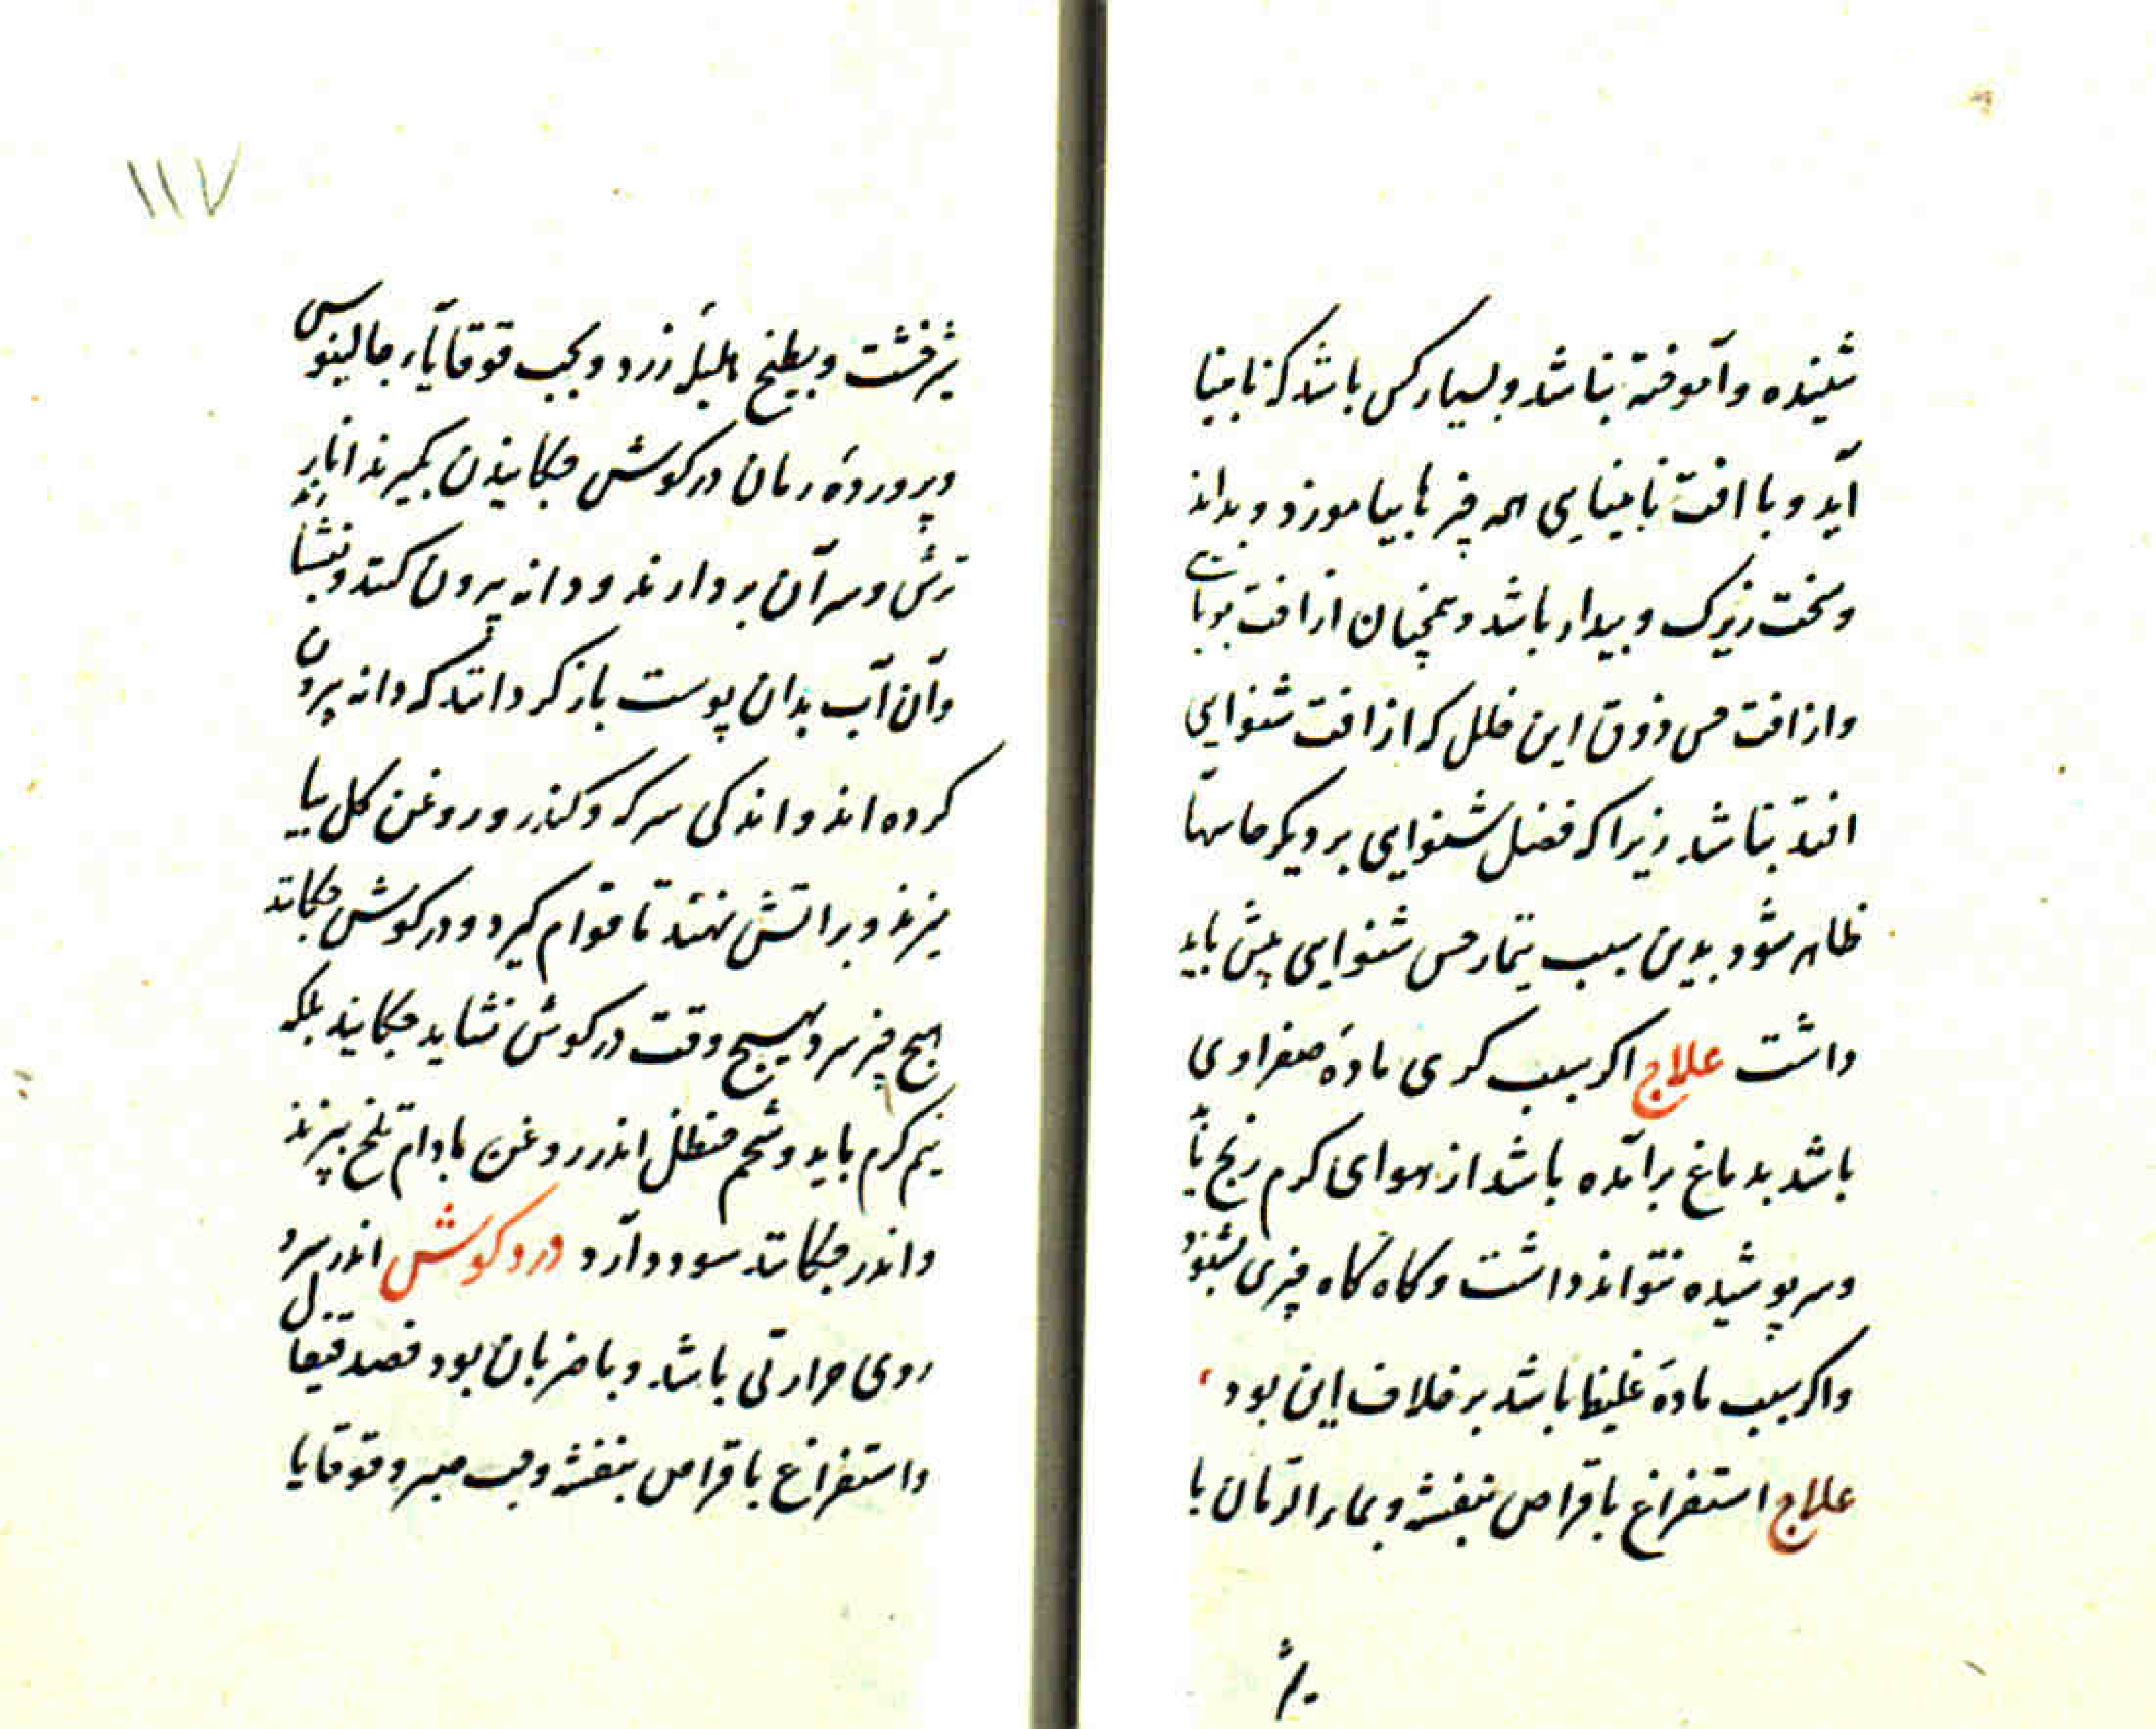 شنیده و آموخته نباشد و بسیار کس باشد که نابینا
آید و با افت نابینایی همه چیزها بیاموزد و بداند
و سخت زیرک و بیدار باشد و همچنان از افت بویایی
و از افت حس ذوق این خلل که از افت شنوایی
افتد نباشد زیرا که فضل شنوایی بر دیکر حاستها
ظاهر شود بدین سبب تیمار حس شنوایی بیش باید
داشت علاج اکر سبب کری مادهٔ صفراوی
باشد بدماغ برآمده باشد از هوای کرم رنج یابد
و سر پوشیده نتواند داشت و کاه کاه چیزی بشنود
و اکر سبب مادهٔ غلیظ باشد بر خلاف این بود
علاج استفراغ باقراص بنفشه و بماء الرمان با
شیر
۱۱۷
شیرخشت و بطبیخ هلیلهٔ زرد و بحب قوقایاء جالینوس
و پروردهٔ رمان در کوش چکانیدن بکیرند انار
ترش و سر آن بردارند و دانه بیرون کنند و بفشارند
و آن آب بدان پوست باز کردانند که دانه بیرون
کرده اند و اندکی سرکه و کندر و روغن کل بیا
میزند و بر اتش نهند تا قوام کیرد و در کوش چکانند
هیچ چیز سرد هیچ وقت در کوش نشاید چکانید بلکه
نیم کرم باید و شحم حنظل اندر روغن بادام تلخ بپزند
و اندر چکانند سود دارد درد کوش اندر سر و
روی حرارتی باشد و با ضربان بود فصد قیفال
و استفراغ باقراص بنفشه و حب صبر و قوقایا